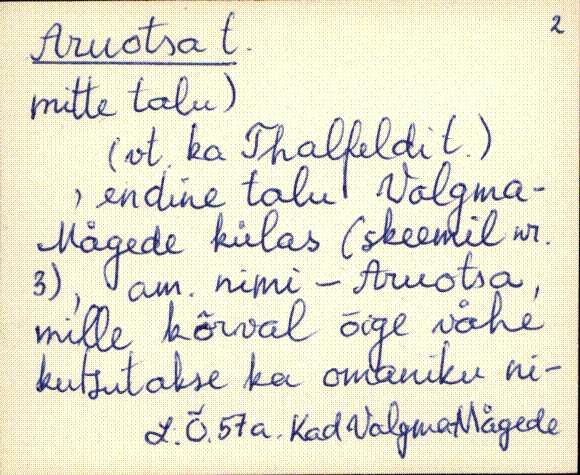 2
Aruotsa t.
mitte talu)
(vt. ka Thalfeldi t.)
, endine talu Valgma-
Mägede külas (skeemil nr.
3), am. nimi – Aruotsa,
mille kõrval õige vähe
kutsutakse ka omaniku ni-
L.Õ. 57a. Kad Valgma-Mägede